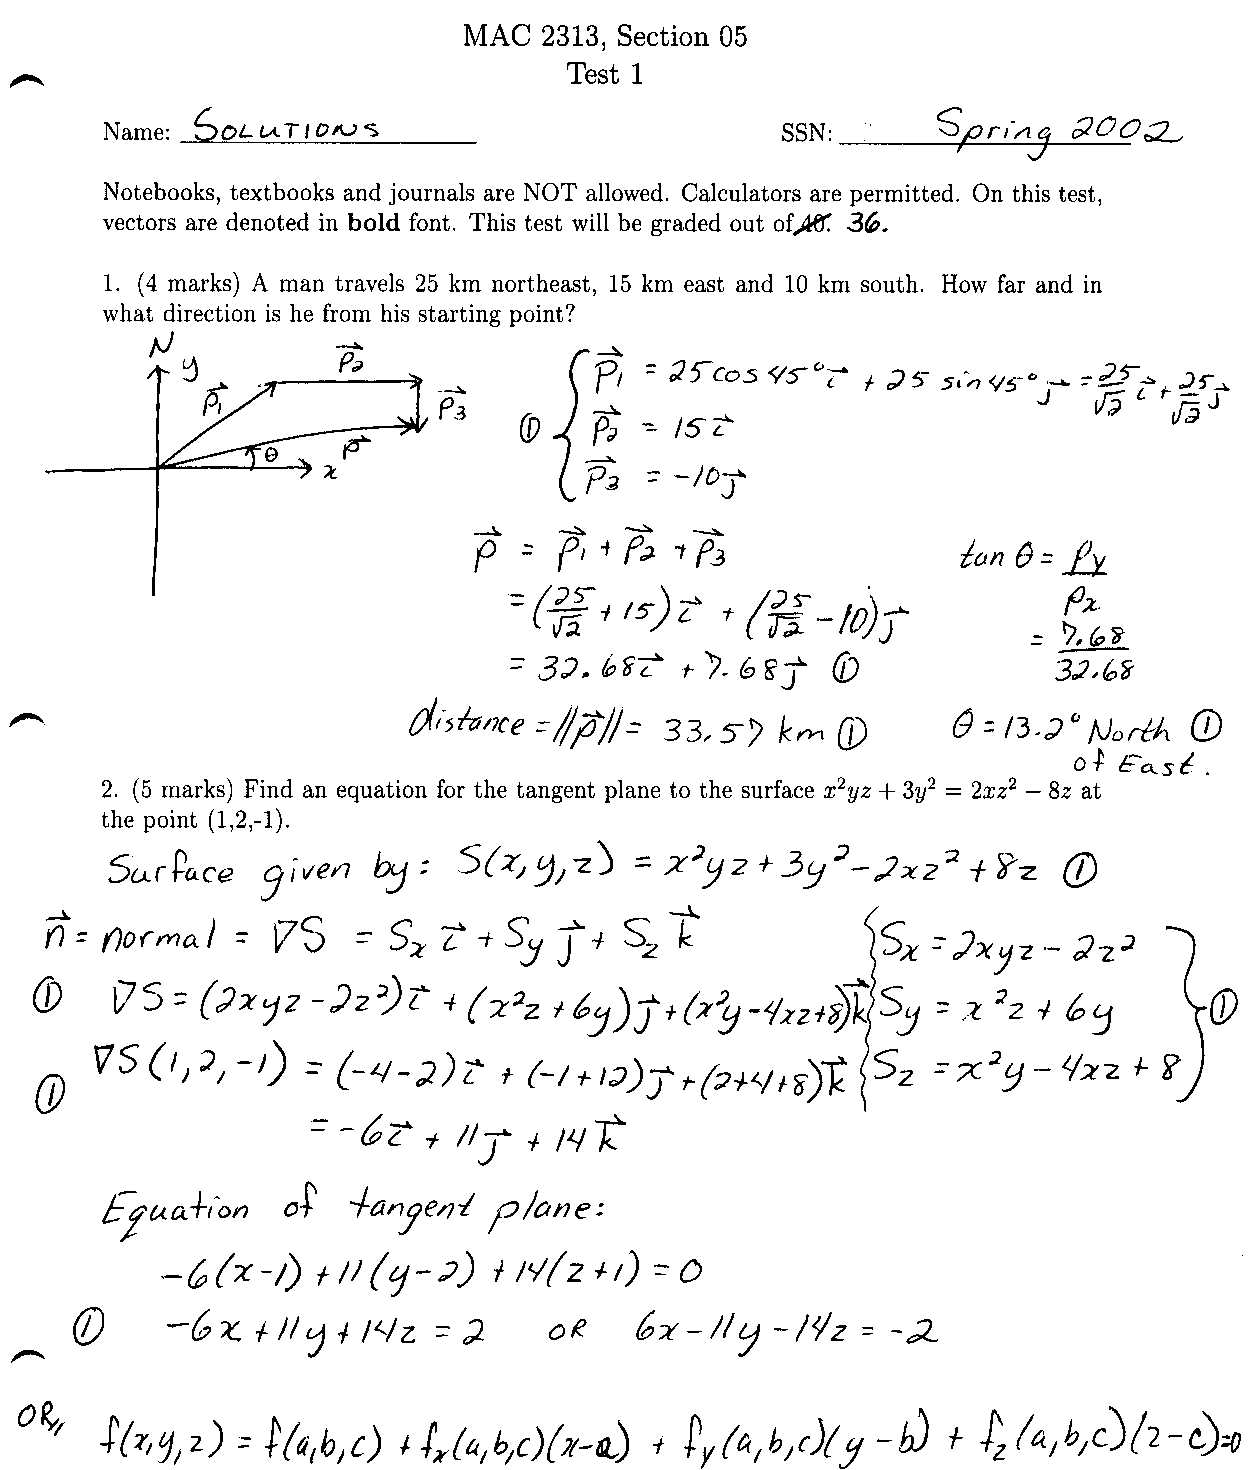 MAC 2313, Section 05
Test 1
Name: SOLUTIONS SSN: Spring 2002
Notebooks, textbooks and journals are NOT allowed. Calculators are permitted. On this test,
vectors are denoted in bold font. This test will be graded out of 40. 36.
1. (4 marks) A man travels 25 km northeast, 15 km east and 10 km south. How far and in
what direction is he from his starting point?
N
y
x
θ
p⃗₁
p⃗₂
p⃗₃
p⃗
① { p⃗₁ = 25 cos 45° i⃗ + 25 sin 45° j⃗ = 25/√2 i⃗ + 25/√2 j⃗
p⃗₂ = 15 i⃗
p⃗₃ = -10 j⃗
p⃗ = p⃗₁ + p⃗₂ + p⃗₃
= (25/√2 + 15) i⃗ + (25/√2 - 10) j⃗
= 32.68 i⃗ + 7.68 j⃗ ①
distance = ||p⃗|| = 33.57 km ①
tan θ = Py/Px
= 7.68/32.68
θ = 13.2° North ①
of East.
2. (5 marks) Find an equation for the tangent plane to the surface x²yz + 3y² = 2xz² − 8z at
the point (1,2,-1).
Surface given by: S(x,y,z) = x²yz + 3y² - 2xz² + 8z ①
n⃗ = normal = ∇S = Sx i⃗ + Sy j⃗ + Sz k⃗
① ∇S = (2xyz - 2z²) i⃗ + (x²z + 6y) j⃗ + (x²y - 4xz + 8) k⃗
① ∇S(1,2,-1) = (-4-2) i⃗ + (-1+12) j⃗ + (2+4+8) k⃗
= -6 i⃗ + 11 j⃗ + 14 k⃗
{ Sx = 2xyz - 2z²
Sy = x²z + 6y } ①
Sz = x²y - 4xz + 8
Equation of tangent plane:
-6(x-1) + 11(y-2) + 14(z+1) = 0
① -6x + 11y + 14z = 2 OR 6x - 11y - 14z = -2
OR,, f(x,y,z) = f(a,b,c) + fx(a,b,c)(x-a) + fy(a,b,c)(y-b) + fz(a,b,c)(z-c)=0